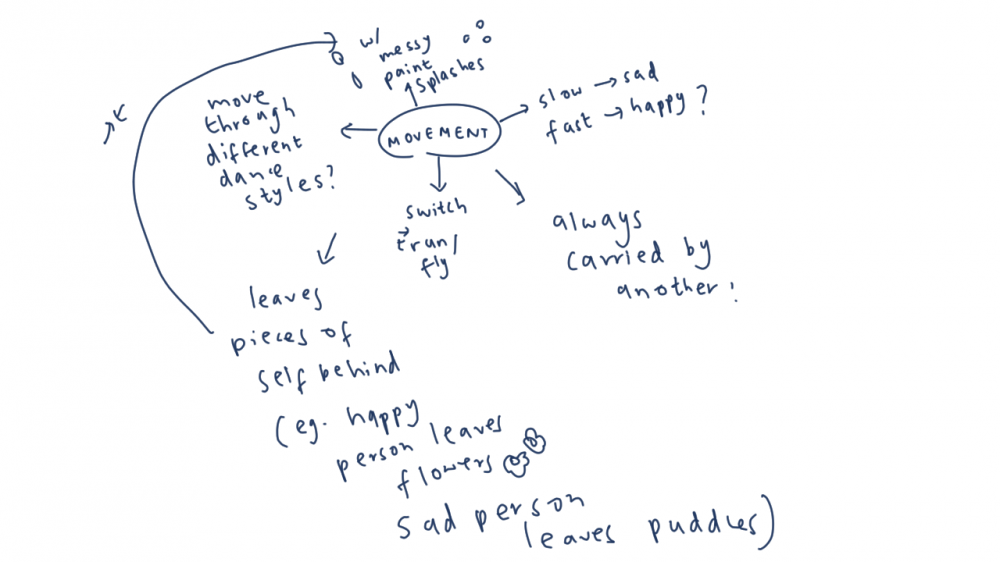 w/
messy
paint
splashes
MOVEMENT
slow → sad
fast → happy?
move
through
different
dance
styles?
switch
run/
fly
always
carried by
another!
leaves
pieces of
self behind
(eg. happy
person leaves
flowers
sad person
leaves puddles)